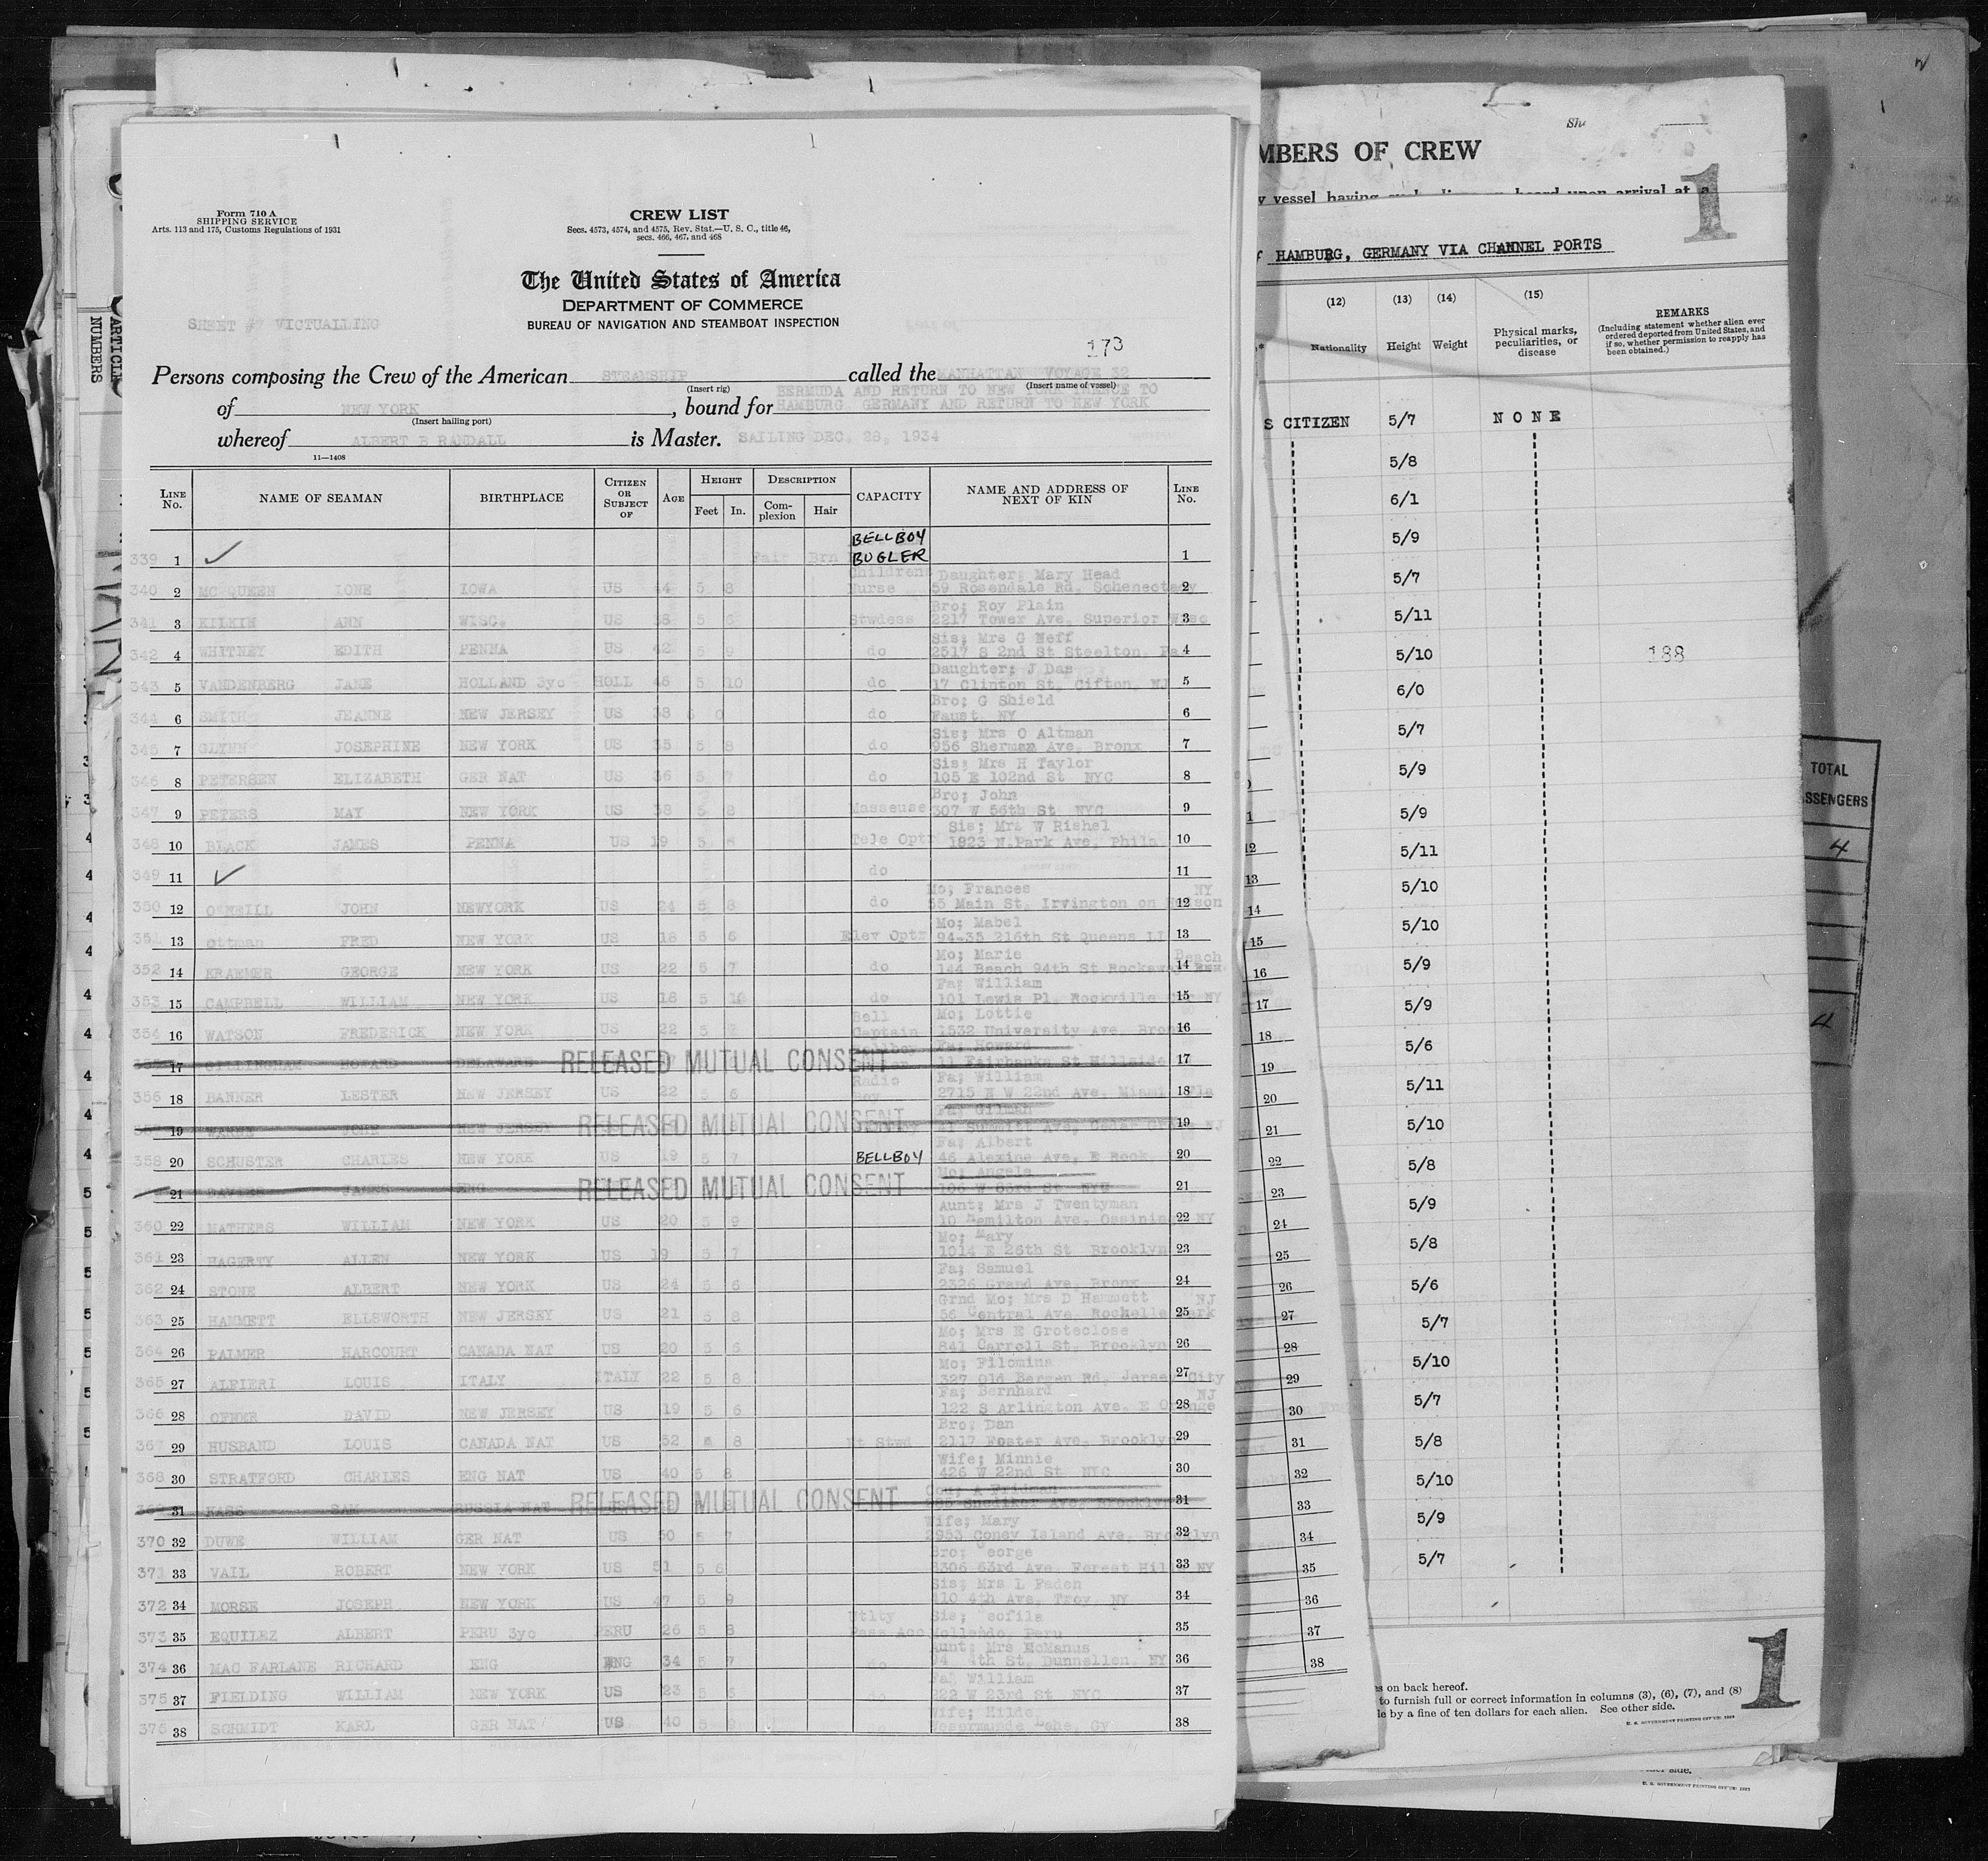 Form 710 A
SHIPPING SERVICE
Arts. 113 and 175, Customs Regulations of 1931
CREW LIST
Secs. 4573, 4574, and 4575, Rev. Stat.—U. S. C., title 46,
secs. 466, 467, and 468
The United States of America
DEPARTMENT OF COMMERCE
BUREAU OF NAVIGATION AND STEAMBOAT INSPECTION
SHEET #7 VICTUALLING
173
Persons composing the Crew of the American STEAMSHIP called the MANHATTAN VOYAGE 32
(Insert rig) (Insert name of vessel)
BERMUDA AND RETURN TO NEW YORK THENCE TO
of NEW YORK, bound for HAMBURG GERMANY AND RETURN TO NEW YORK
(Insert hailing port)
whereof ALBERT B RANDALL is Master. SAILING DEC. 28, 1934
11—1408
LINE No. NAME OF SEAMAN BIRTHPLACE CITIZEN OR SUBJECT OF AGE HEIGHT Feet In. DESCRIPTION Complexion Hair CAPACITY NAME AND ADDRESS OF NEXT OF KIN LINE No.
BELLBOY
339 1 Fair Brn BUGLER 1
Childrens Daughter; Mary Head
340 2 MC QUEEN IONE IOWA US 44 5 8 Nurse 59 Rosendale Rd. Schenectady 2
Bro; Roy Plain
341 3 KILKIN ANN WISC. US 38 5 6 Stwdess 2217 Tower Ave. Superior Wisc 3
Sis; Mrs G Neff
342 4 WHITNEY EDITH PENNA US 42 5 9 do 2517 S 2nd St Steelton, Pa 4
Daughter; J Das
343 5 VANDENBERG JANE HOLLAND 3yc HOLL 46 5 10 do 17 Clinton St. Cifton, NJ 5
Bro; G Shield
344 6 SMITH JEANNE NEW JERSEY US 38 0 do Faust, NY 6
Sis; Mrs O Altman
345 7 GLYNN JOSEPHINE NEW YORK US 35 5 8 do 956 Sherman Ave. Bronx 7
Sis; Mrs H Taylor
346 8 PETERSEN ELIZABETH GER NAT US 36 5 7 do 105 E 102nd St NYC 8
Bro; John
347 9 PETERS MAY NEW YORK US 38 5 8 Masseuse 307 W 56th St NYC 9
Sis; Mrs W Rishel
348 10 BLACK JAMES PENNA US 19 5 Tele Optr 1923 N.Park Ave, Phila 10
349 11 do 11
Mo; Frances NY
350 12 O'NEILL JOHN NEWYORK US 24 5 8 do 55 Main St. Irvington on Hudson 12
Mo; Mabel
351 13 ottman FRED NEW YORK US 18 5 6 Elev Optr 94-35 216th St Queens LI 13
Mo; Marie Beach
352 14 KRAEMER GEORGE NEW YORK US 22 5 7 do 144 Beach 94th St Rockaway 14
Fa; William
353 15 CAMPBELL WILLIAM NEW YORK US 18 5 10 do 101 Lewis Pl. Rockville NY 15
Bell Mo; Lottie
354 16 WATSON FREDERICK NEW YORK US 22 5 Captain 1532 University Ave. Bronx 16
Bellboy Fa; Howard
17 GILLINGHAM HOWARD DELAWARE RELEASED MUTUAL CONSENT 11 Fairbanks St Hillside 17
Radio Fa; William
356 18 BANNER LESTER NEW JERSEY US 22 5 6 Boy 2715 N W 22nd Ave. Miami Fla 18
Fa; Gilman
19 JOHN NEW JERSEY RELEASED MUTUAL CONSENT 21 Summit Ave, Cedar NJ 19
Fa; Albert
358 20 SCHUSTER CHARLES NEW YORK US 19 5 7 BELLBOY 46 Alexine Ave, E Rock. 20
Mo; Angela
21 JAMES ENG RELEASED MUTUAL CONSENT 106 W 63rd St NYC 21
Aunt; Mrs J Twentyman
360 22 MATHERS WILLIAM NEW YORK US 20 5 9 10 Hamilton Ave. Ossining NY 22
Mo; Mary
361 23 HAGERTY ALLEN NEW YORK US 19 5 7 1014 E 26th St Brooklyn 23
Fa; Samuel
362 24 STONE ALBERT NEW YORK US 24 5 6 2326 Grand Ave. Bronx 24
Grnd Mo; Mrs D Hammett NJ
363 25 HAMMETT ELLSWORTH NEW JERSEY US 21 5 8 56 Central Ave. Rochelle Park 25
Mo; Mrs E Groteclose
364 26 PALMER HARCOURT CANADA NAT US 20 5 6 841 Carroll St. Brooklyn 26
Mo; Filomina
365 27 ALFIERI LOUIS ITALY ITALY 22 5 8 327 Old Bergen Rd. Jersey City 27
Fa; Bernhard NJ
366 28 DAVID NEW JERSEY US 19 5 6 122 S Arlington Ave. E Orange 28
Bro; Dan
367 29 HUSBAND LOUIS CANADA NAT US 52 8 Nt Stwd 2117 Foster Ave. Brooklyn 29
Wife; Minnie
368 30 STRATFORD CHARLES ENG NAT US 40 5 8 426 W 22nd St NYC 30
A Fridman
31 KASS SAM RUSSIA NAT RELEASED MUTUAL CONSENT Snediker Ave. Brooklyn 31
Wife; Mary
370 32 DUWE WILLIAM GER NAT US 50 5 7 2953 Coney Island Ave. Brooklyn 32
Bro; George
371 33 VAIL ROBERT NEW YORK US 51 5 6 6306 63rd Ave. Forest Hills NY 33
Sis; Mrs L Faden
372 34 MORSE JOSEPH NEW YORK US 47 5 9 310 4th Ave. Troy, NY 34
Utlty Sis; Teofila
373 35 EQUILEZ ALBERT PERU 3yc PERU 26 5 8 Pass Acc Mollendo, Peru 35
Aunt; Mrs McManus
374 36 MAC FARLANE RICHARD ENG ENG 34 5 7 do 4th St. Dunnellen, NY 36
Fa; William
375 37 FIELDING WILLIAM NEW YORK US 23 5 6 222 W 23rd St NYC 37
Wife; Hilde,
376 38 SCHMIDT KARL GER NAT US 40 5 Wesermunde Lehe, Gy 38
MBERS OF CREW
1
HAMBURG, GERMANY VIA CHANNEL PORTS
(12) (13) (14) (15)
Nationality Height Weight Physical marks, peculiarities, or disease
REMARKS
(Including statement whether alien ever
ordered deported from United States, and
if so, whether permission to reapply has
been obtained.)
S CITIZEN 5/7 NONE
5/8
6/1
5/9
5/7
5/11
5/10 188
6/0
5/7
5/9
5/9
5/11
5/10
5/10
5/9
5/9
5/6
5/11
5/10
5/8
5/9
5/8
5/6
5/7
5/10
5/7
5/8
5/10
5/9
5/7
12
13
14
15
16
17
18
19
20
21
22
23
24
25
26
27
28
29
30
31
32
33
34
35
36
37
38
s on back hereof.
to furnish full or correct information in columns (3), (6), (7), and (8)
le by a fine of ten dollars for each alien. See other side.
1
TOTAL
SSENGERS
4
4
NUMBERS